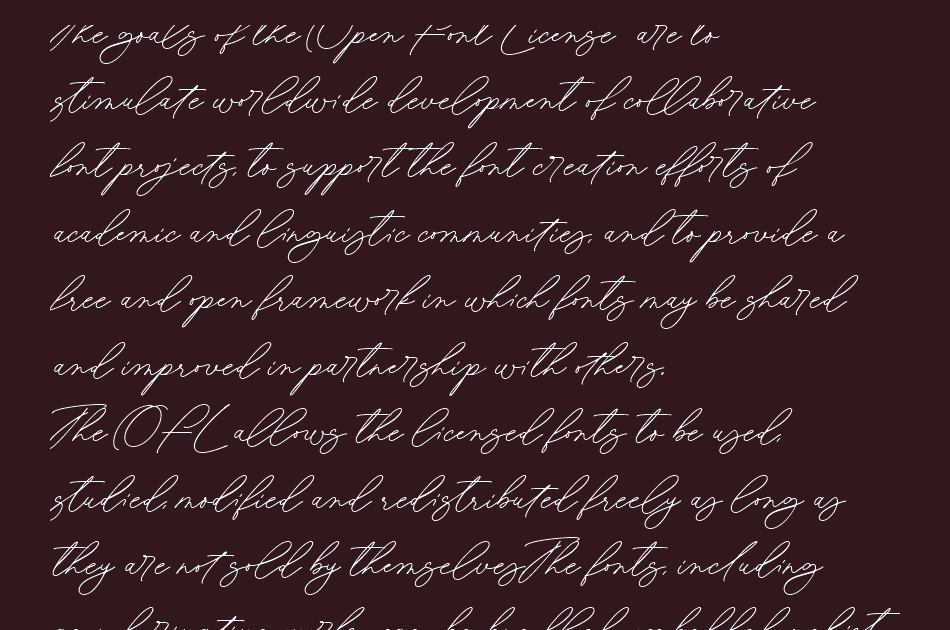 The goals of the Open Font License are to
stimulate worldwide development of collaborative
font projects, to support the font creation efforts of
academic and linguistic communities, and to provide a
free and open framework in which fonts may be shared
and improved in partnership with others.
The OFL allows the licensed fonts to be used,
studied, modified and redistributed freely as long as
they are not sold by themselves. The fonts, including